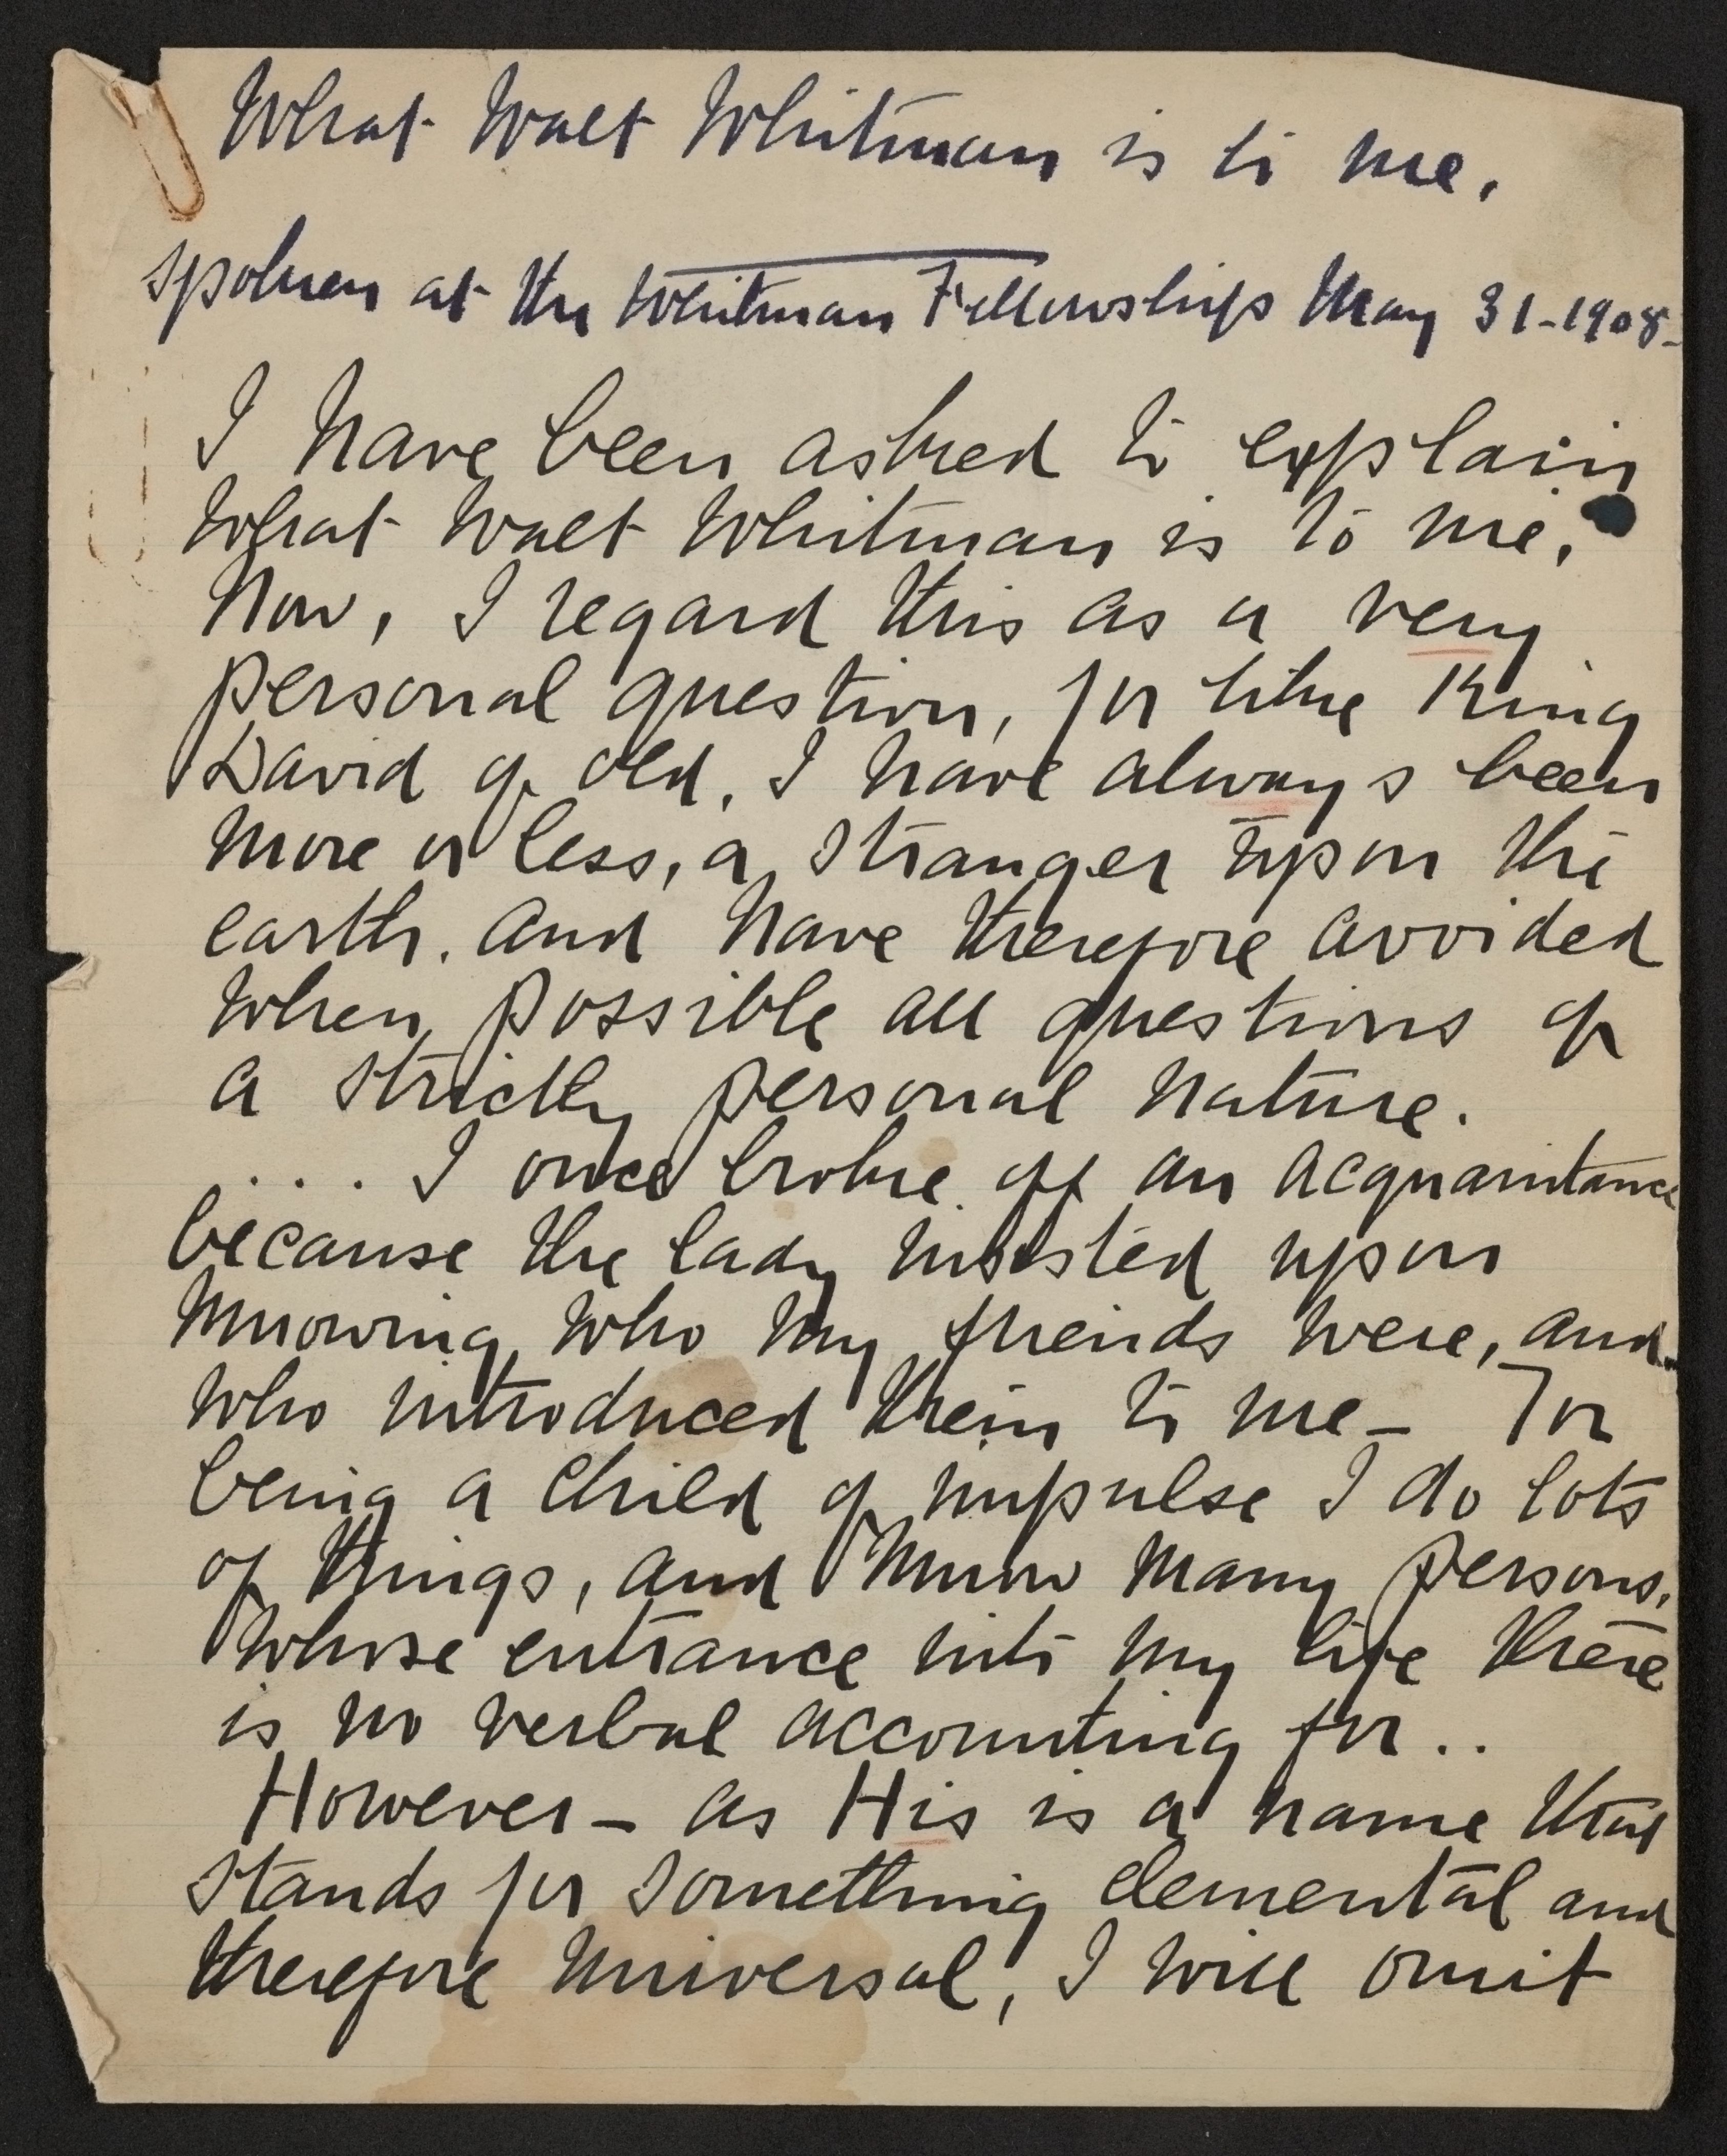 What Walt Whitman is to me.
spoken at the Whitman Fellowship May 31-1908-
I have been asked to explain
what Walt Whitman is to me.
Now, I regard this as a very
personal question, for like King
David of old, I have always been
more or less, a stranger upon the
earth. and have therefore avoided
when possible all questions of
a strictly personal nature.
.... I once broke off an acquaintance
because the lady insisted upon
knowing who my friends were, and
who introduced them to me - For
being a child of impulse I do lots
of things, and know many persons,
whose entrance into my life there
is no verbal accounting for ..
However - as His is a name that
stands for something elemental and
therefore universal, I will omit